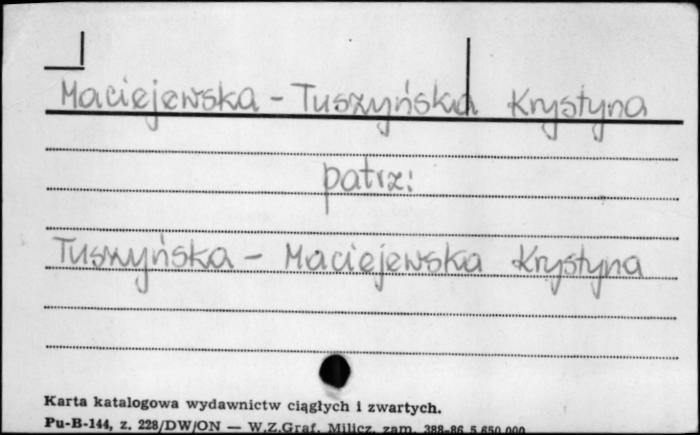 Maciejewska - Tuszyńska Krystyna
patrz:
Tuszyńska - Maciejewska Krystyna
Karta katalogowa wydawnictw ciągłych i zwartych.
Pu-B-144, z. 228/DW/ON — W.Z.Graf. Milicz, zam. 388-86 5.650.000